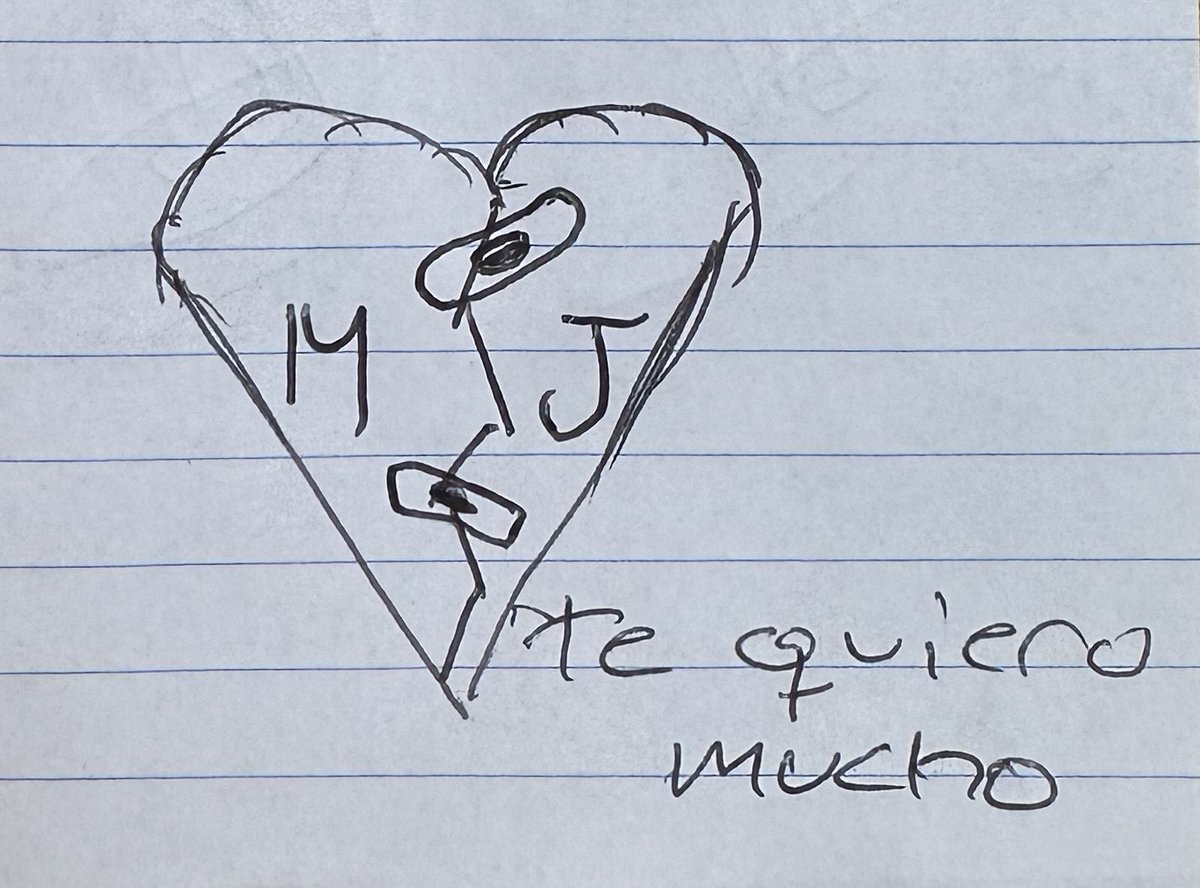 M J
te quiero
mucho